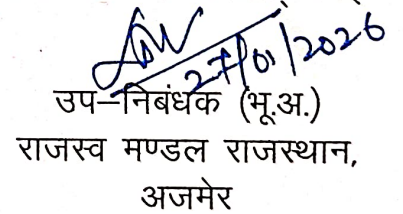 27/01/2026
उप–निबंधक (भू.अ.)
राजस्व मण्डल राजस्थान,
अजमेर